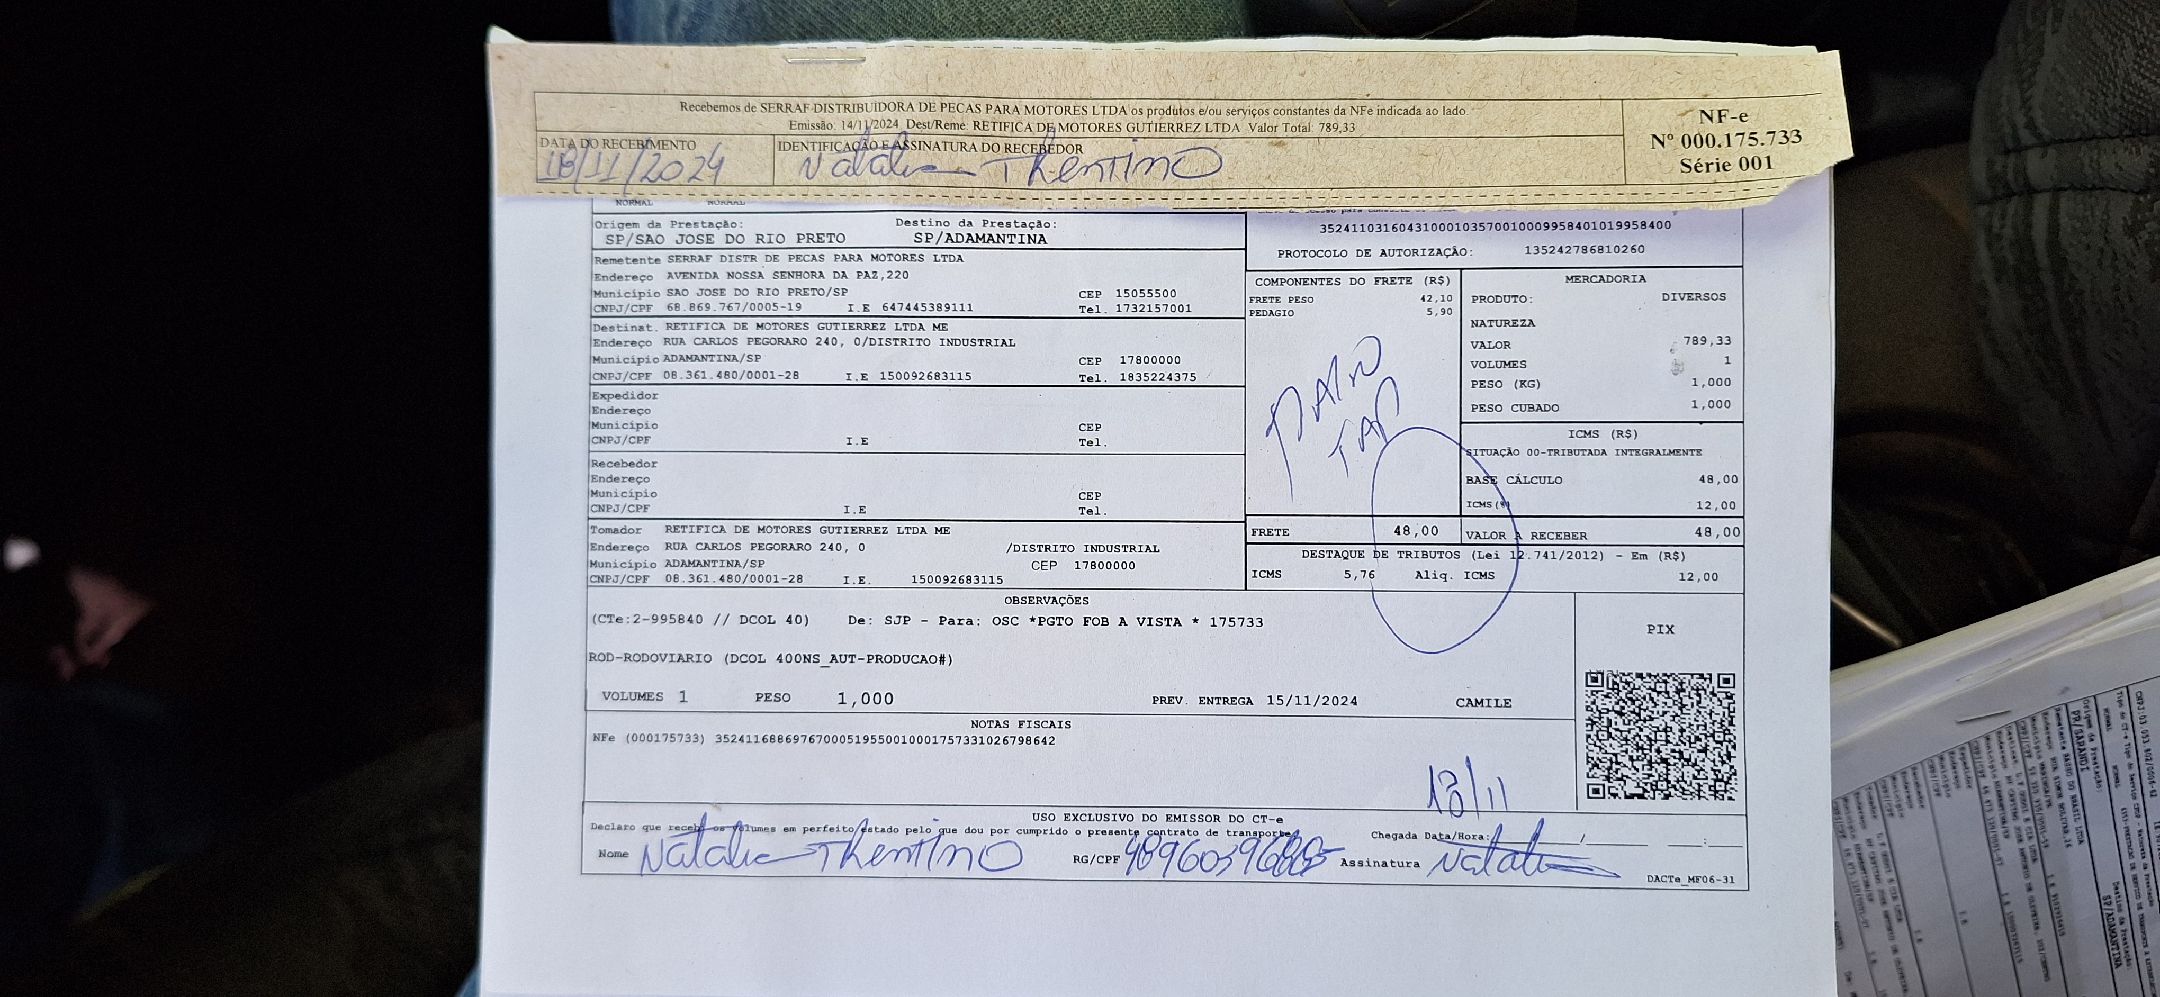 Recebemos de SERRAF DISTRIBUIDORA DE PECAS PARA MOTORES LTDA os produtos e/ou serviços constantes da NFe indicada ao lado.
Emissão: 14/11/2024 Dest/Reme: RETIFICA DE MOTORES GUTIERREZ LTDA Valor Total: 789,33
DATA DO RECEBIMENTO
18/11/2024
IDENTIFICAÇÃO E ASSINATURA DO RECEBEDOR
Natalia Thentino
NF-e
Nº 000.175.733
Série 001
NORMAL NORMAL
Origem da Prestação: Destino da Prestação:
SP/SAO JOSE DO RIO PRETO SP/ADAMANTINA
35241103160431000103570010009958401019958400
PROTOCOLO DE AUTORIZAÇÃO: 135242786810260
Remetente SERRAF DISTR DE PECAS PARA MOTORES LTDA
Endereço AVENIDA NOSSA SENHORA DA PAZ,220
Município SAO JOSE DO RIO PRETO/SP CEP 15055500
CNPJ/CPF 68.869.767/0005-19 I.E 647445389111 Tel. 1732157001
Destinat. RETIFICA DE MOTORES GUTIERREZ LTDA ME
Endereço RUA CARLOS PEGORARO 240, 0/DISTRITO INDUSTRIAL
Município ADAMANTINA/SP CEP 17800000
CNPJ/CPF 08.361.480/0001-28 I.E 150092683115 Tel. 1835224375
Expedidor
Endereço
Município CEP
CNPJ/CPF I.E Tel.
Recebedor
Endereço
Município CEP
CNPJ/CPF I.E Tel.
Tomador RETIFICA DE MOTORES GUTIERREZ LTDA ME
Endereço RUA CARLOS PEGORARO 240, 0 /DISTRITO INDUSTRIAL
Município ADAMANTINA/SP CEP 17800000
CNPJ/CPF 08.361.480/0001-28 I.E. 150092683115
COMPONENTES DO FRETE (R$)
FRETE PESO 42,10
PEDAGIO 5,90
FRETE 48,00
MERCADORIA
PRODUTO: DIVERSOS
NATUREZA
VALOR 789,33
VOLUMES 1
PESO (KG) 1,000
PESO CUBADO 1,000
ICMS (R$)
SITUAÇÃO 00-TRIBUTADA INTEGRALMENTE
BASE CÁLCULO 48,00
ICMS (%) 12,00
VALOR A RECEBER 48,00
DESTAQUE DE TRIBUTOS (Lei 12.741/2012) - Em (R$)
ICMS 5,76 Aliq. ICMS 12,00
OBSERVAÇÕES
(CTe:2-995840 // DCOL 40) De: SJP - Para: OSC *PGTO FOB A VISTA * 175733
ROD-RODOVIARIO (DCOL 400NS_AUT-PRODUCAO#)
VOLUMES 1 PESO 1,000 PREV. ENTREGA 15/11/2024 CAMILE
PIX
NOTAS FISCAIS
NFe (000175733) 35241168869767000519550010001757331026798642
18/11
USO EXCLUSIVO DO EMISSOR DO CT-e
Declaro que recebi os volumes em perfeito estado pelo que dou por cumprido o presente contrato de transporte. Chegada Data/Hora: / :
Nome Natalia Thentino RG/CPF Assinatura Natalia
DACTe_MF06-31